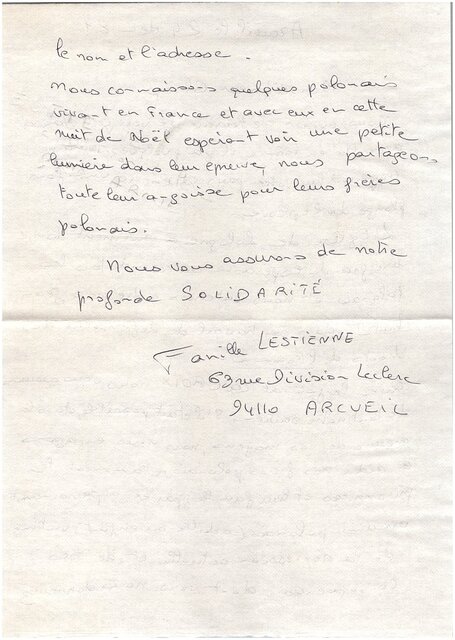 le nom et l'adresse.
Nous connaissons quelques polonais
vivant en France et avec eux en cette
nuit de Noël espérant voir une petite
lumière dans leur épreuve, nous partageons
toute leur angoisse pour leurs frères
polonais.
Nous vous assurons de notre
profonde SOLIDARITÉ
Famille LESTIENNE
63 rue Division Leclerc
94110 ARCUEIL